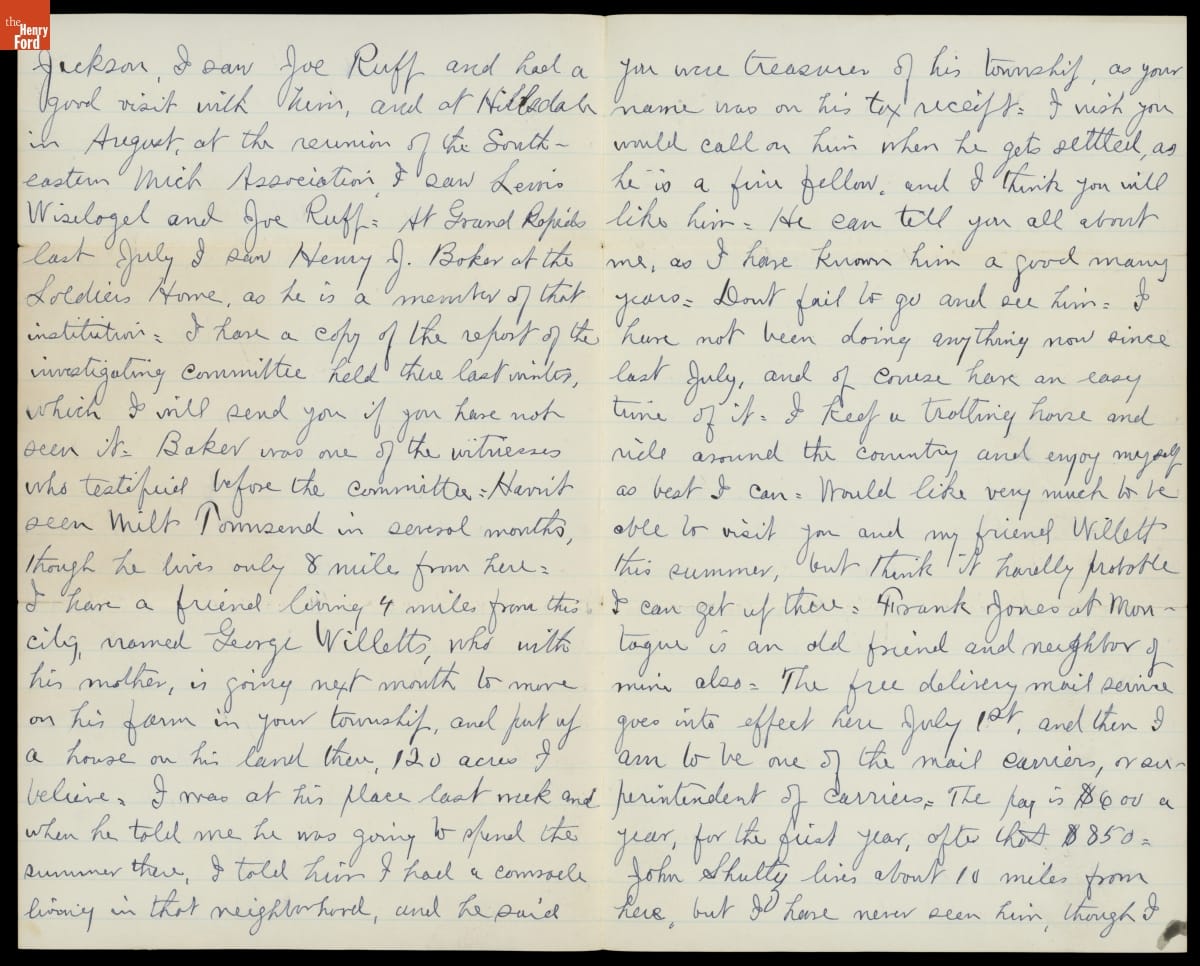 the
Henry
Ford
Jackson, I saw Joe Ruff and had a
good visit with him, and at Hillsdale
in August, at the reunion of the South-
eastern Mich Association, I saw Lewis
Wiselogel and Joe Ruff= At Grand Rapids
last July I saw Henry J. Baker at the
Soldiers Home, as he is a member of that
institution= I have a copy of the report of the
investigating committee held there last winter,
which I will send you if you have not
seen it= Baker was one of the witnesses
who testified before the committee= Havnt
seen Milt Townsend in several months,
though he lives only 8 miles from here=
I have a friend living 4 miles from this
city, named George Willetts, who with
his mother, is going next month to move
on his farm in your township, and put up
a house on his land there, 120 acres I
believe= I was at his place last week and
when he told me he was going to spend the
summer there, I told him I had a comrade
living in that neighborhood, and he said
you were treasurer of his township, as your
name was on his tax receipt= I wish you
would call on him when he gets settled, as
he is a fine fellow, and I think you will
like him= He can tell you all about
me, as I have known him a good many
years= Dont fail to go and see him= I
have not been doing anything now since
last July, and of course have an easy
time of it= I keep a trotting horse and
ride around the country and enjoy myself
as best I can= Would like very much to be
able to visit you and my friend Willett
this summer, but think it hardly probable
I can get up there= Frank Jones at Mon-
tague is an old friend and neighbor of
mine also= The free delivery mail service
goes into effect here July 1st, and then I
am to be one of the mail carriers, or su-
perintendent of carriers= The pay is $600 a
year, for the first year, after that $850=
John Shultz lives about 10 miles from
here, but I have never seen him, though I